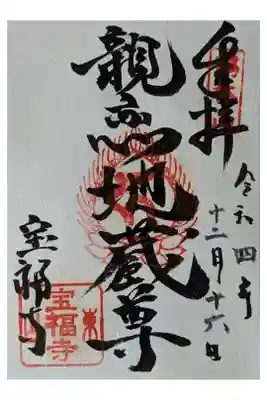 奉拝
令和四年
十二月十六日
親恋地蔵尊
宝福寺
東
宝福寺